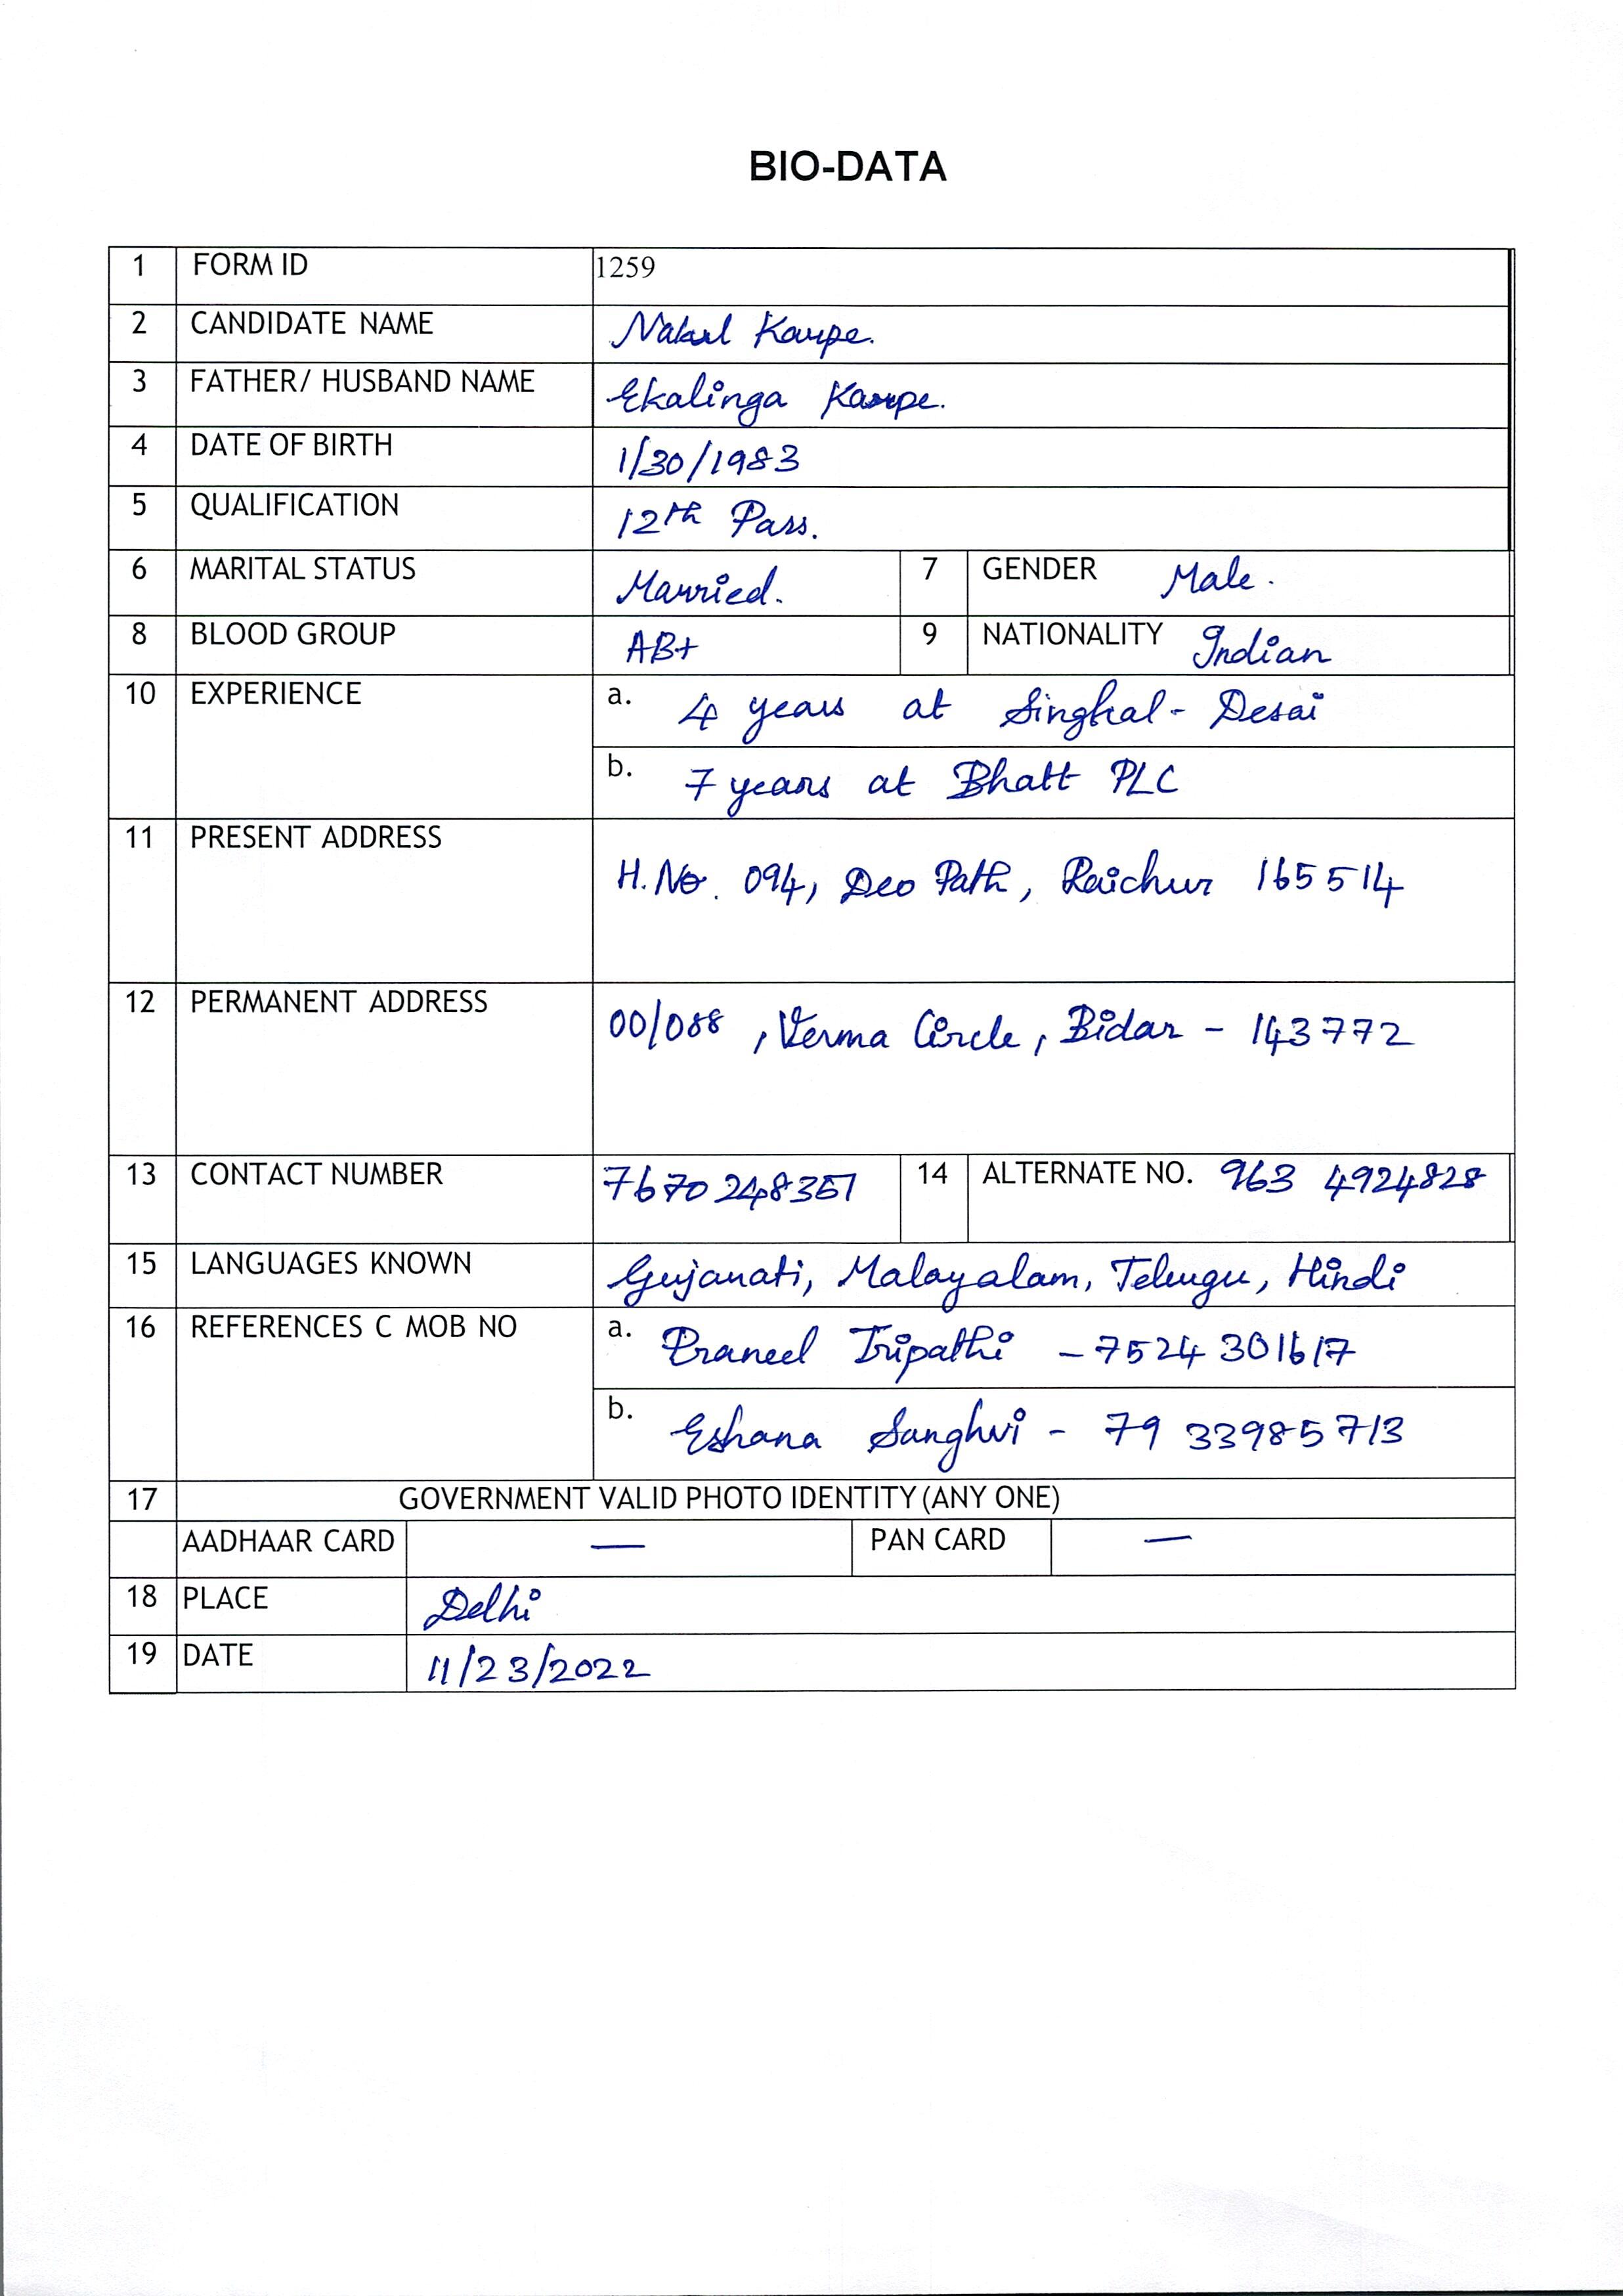 BIO-DATA
1 FORM ID 1259
2 CANDIDATE NAME Nakul Karpe.
3 FATHER/ HUSBAND NAME Ekalinga Karpe.
4 DATE OF BIRTH 1/30/1983
5 QUALIFICATION 12th Pass.
6 MARITAL STATUS Married. 7 GENDER Male.
8 BLOOD GROUP AB+ 9 NATIONALITY Indian
10 EXPERIENCE a. 4 years at Singhal-Desai
b. 7 years at Bhatt PLC
11 PRESENT ADDRESS
H.No. 094, Deo Path, Raichur 165514
12 PERMANENT ADDRESS 00/088, Verma Circle, Bidar - 143772
13 CONTACT NUMBER 7670248351 14 ALTERNATE NO. 963 4924828
15 LANGUAGES KNOWN Gujarati, Malayalam, Telugu, Hindi
16 REFERENCES C MOB NO a. Praneel Tripathi - 7524301617
b. Eshana Sanghvi - 79 33985713
17 GOVERNMENT VALID PHOTO IDENTITY (ANY ONE)
AADHAAR CARD — PAN CARD —
18 PLACE Delhi
19 DATE 11/23/2022